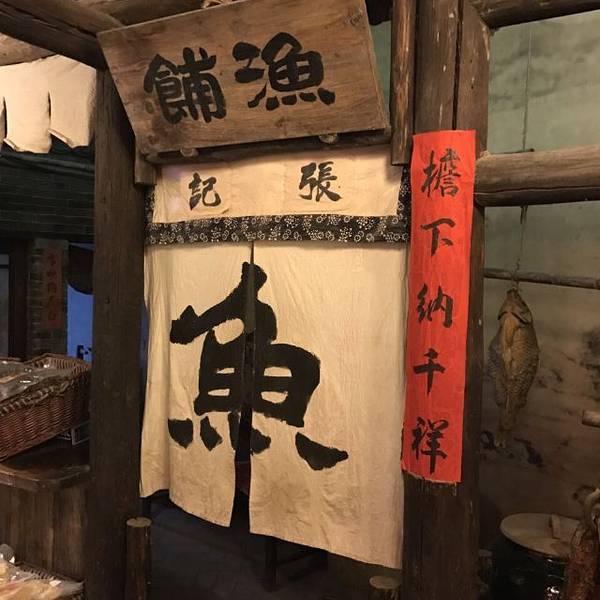 漁舖
張記
魚
檐下納千祥